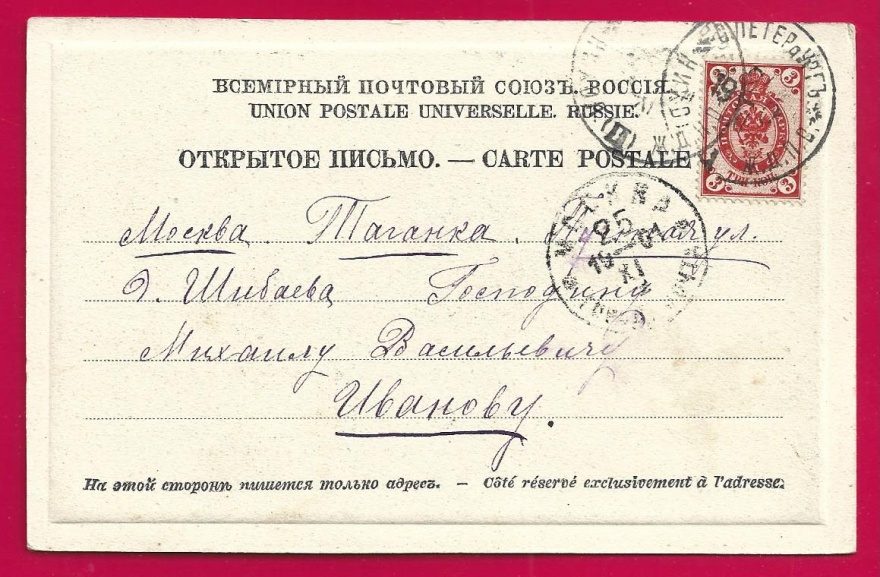 ВСЕМІРНЫЙ ПОЧТОВЫЙ СОЮЗЪ. РОССІЯ.
UNION POSTALE UNIVERSELLE. RUSSIE.
ОТКРЫТОЕ ПИСЬМО. — CARTE POSTALE
3 3
3 3
25
19 01
XI
Москва. Таганка. ул.
д. Шибаева Господину
Михаилу Васильевичу
Иванову.
На этой сторонѣ пишется только адресъ. — Côté réservé exclusivement à l'adresse.